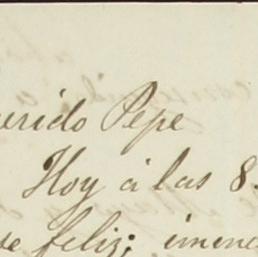 uerido Pepe
Hoy á las 8.
se feliz; inme